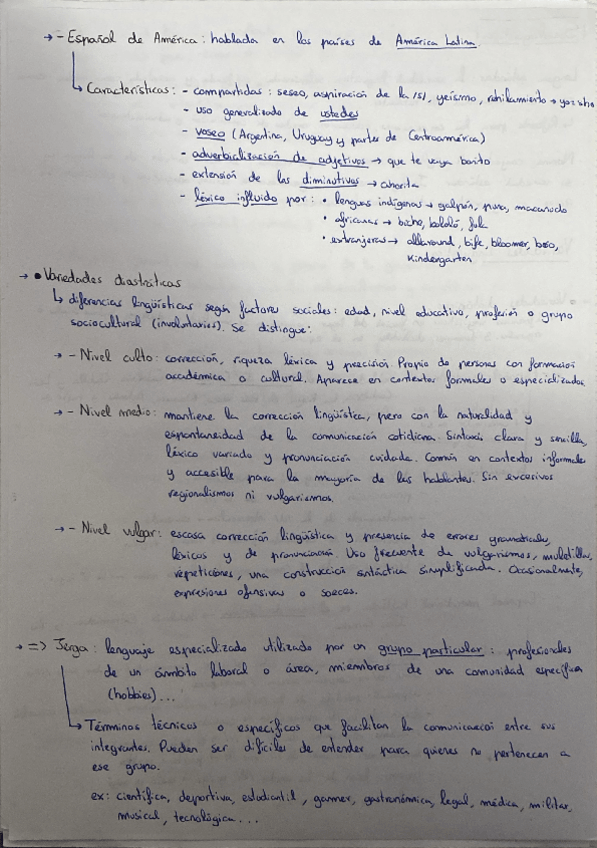 → - Español de América: hablada en los países de América Latina.
↳ Características: - compartidas: seseo, aspiración de la /s/, yeísmo, rehilamiento →
- uso generalizado de ustedes
- voseo (Argentina, Uruguay y partes de Centroamérica)
- adverbialización de adjetivos → que te vaya bonito
- extensión de los diminutivos → ahorita
- léxico influido por: • lenguas indígenas → galpón, puna, macanudo
• africanas → bicho, bololó, fula
• extranjeras → allaround, bife, bloomer, boio,
Kindergarten
→ • Variedades diastráticas
↳ diferencias lingüísticas según factores sociales: edad, nivel educativo, profesión o grupo
sociocultural (involuntarios). Se distingue:
→ - Nivel culto: corrección, riqueza léxica y precisión. Propio de personas con formación
académica o cultural. Aparece en contextos formales o especializados.
→ - Nivel medio: mantiene la corrección lingüística, pero con la naturalidad y
espontaneidad de la comunicación cotidiana. Sintaxis clara y sencilla,
léxico variado y pronunciación cuidada. Común en contextos informales
y accesible para la mayoría de los hablantes. Sin excesivos
regionalismos ni vulgarismos.
→ - Nivel vulgar: escasa corrección lingüística y presencia de errores gramaticales,
léxicos y de pronunciación. Uso frecuente de vulgarismos, muletillas,
repeticiones, una construcción sintáctica simplificada. Ocasionalmente,
expresiones ofensivas o soeces.
→ => Jerga: lenguaje especializado utilizado por un grupo particular: profesionales
de un ámbito laboral o área, miembros de una comunidad específica
(hobbies)...
↳ Términos técnicos o específicos que facilitan la comunicación entre sus
integrantes. Pueden ser difíciles de entender para quienes no pertenecen a
ese grupo.
ex: científica, deportiva, estudiantil, gamer, gastronómica, legal, médica, militar,
musical, tecnológica...